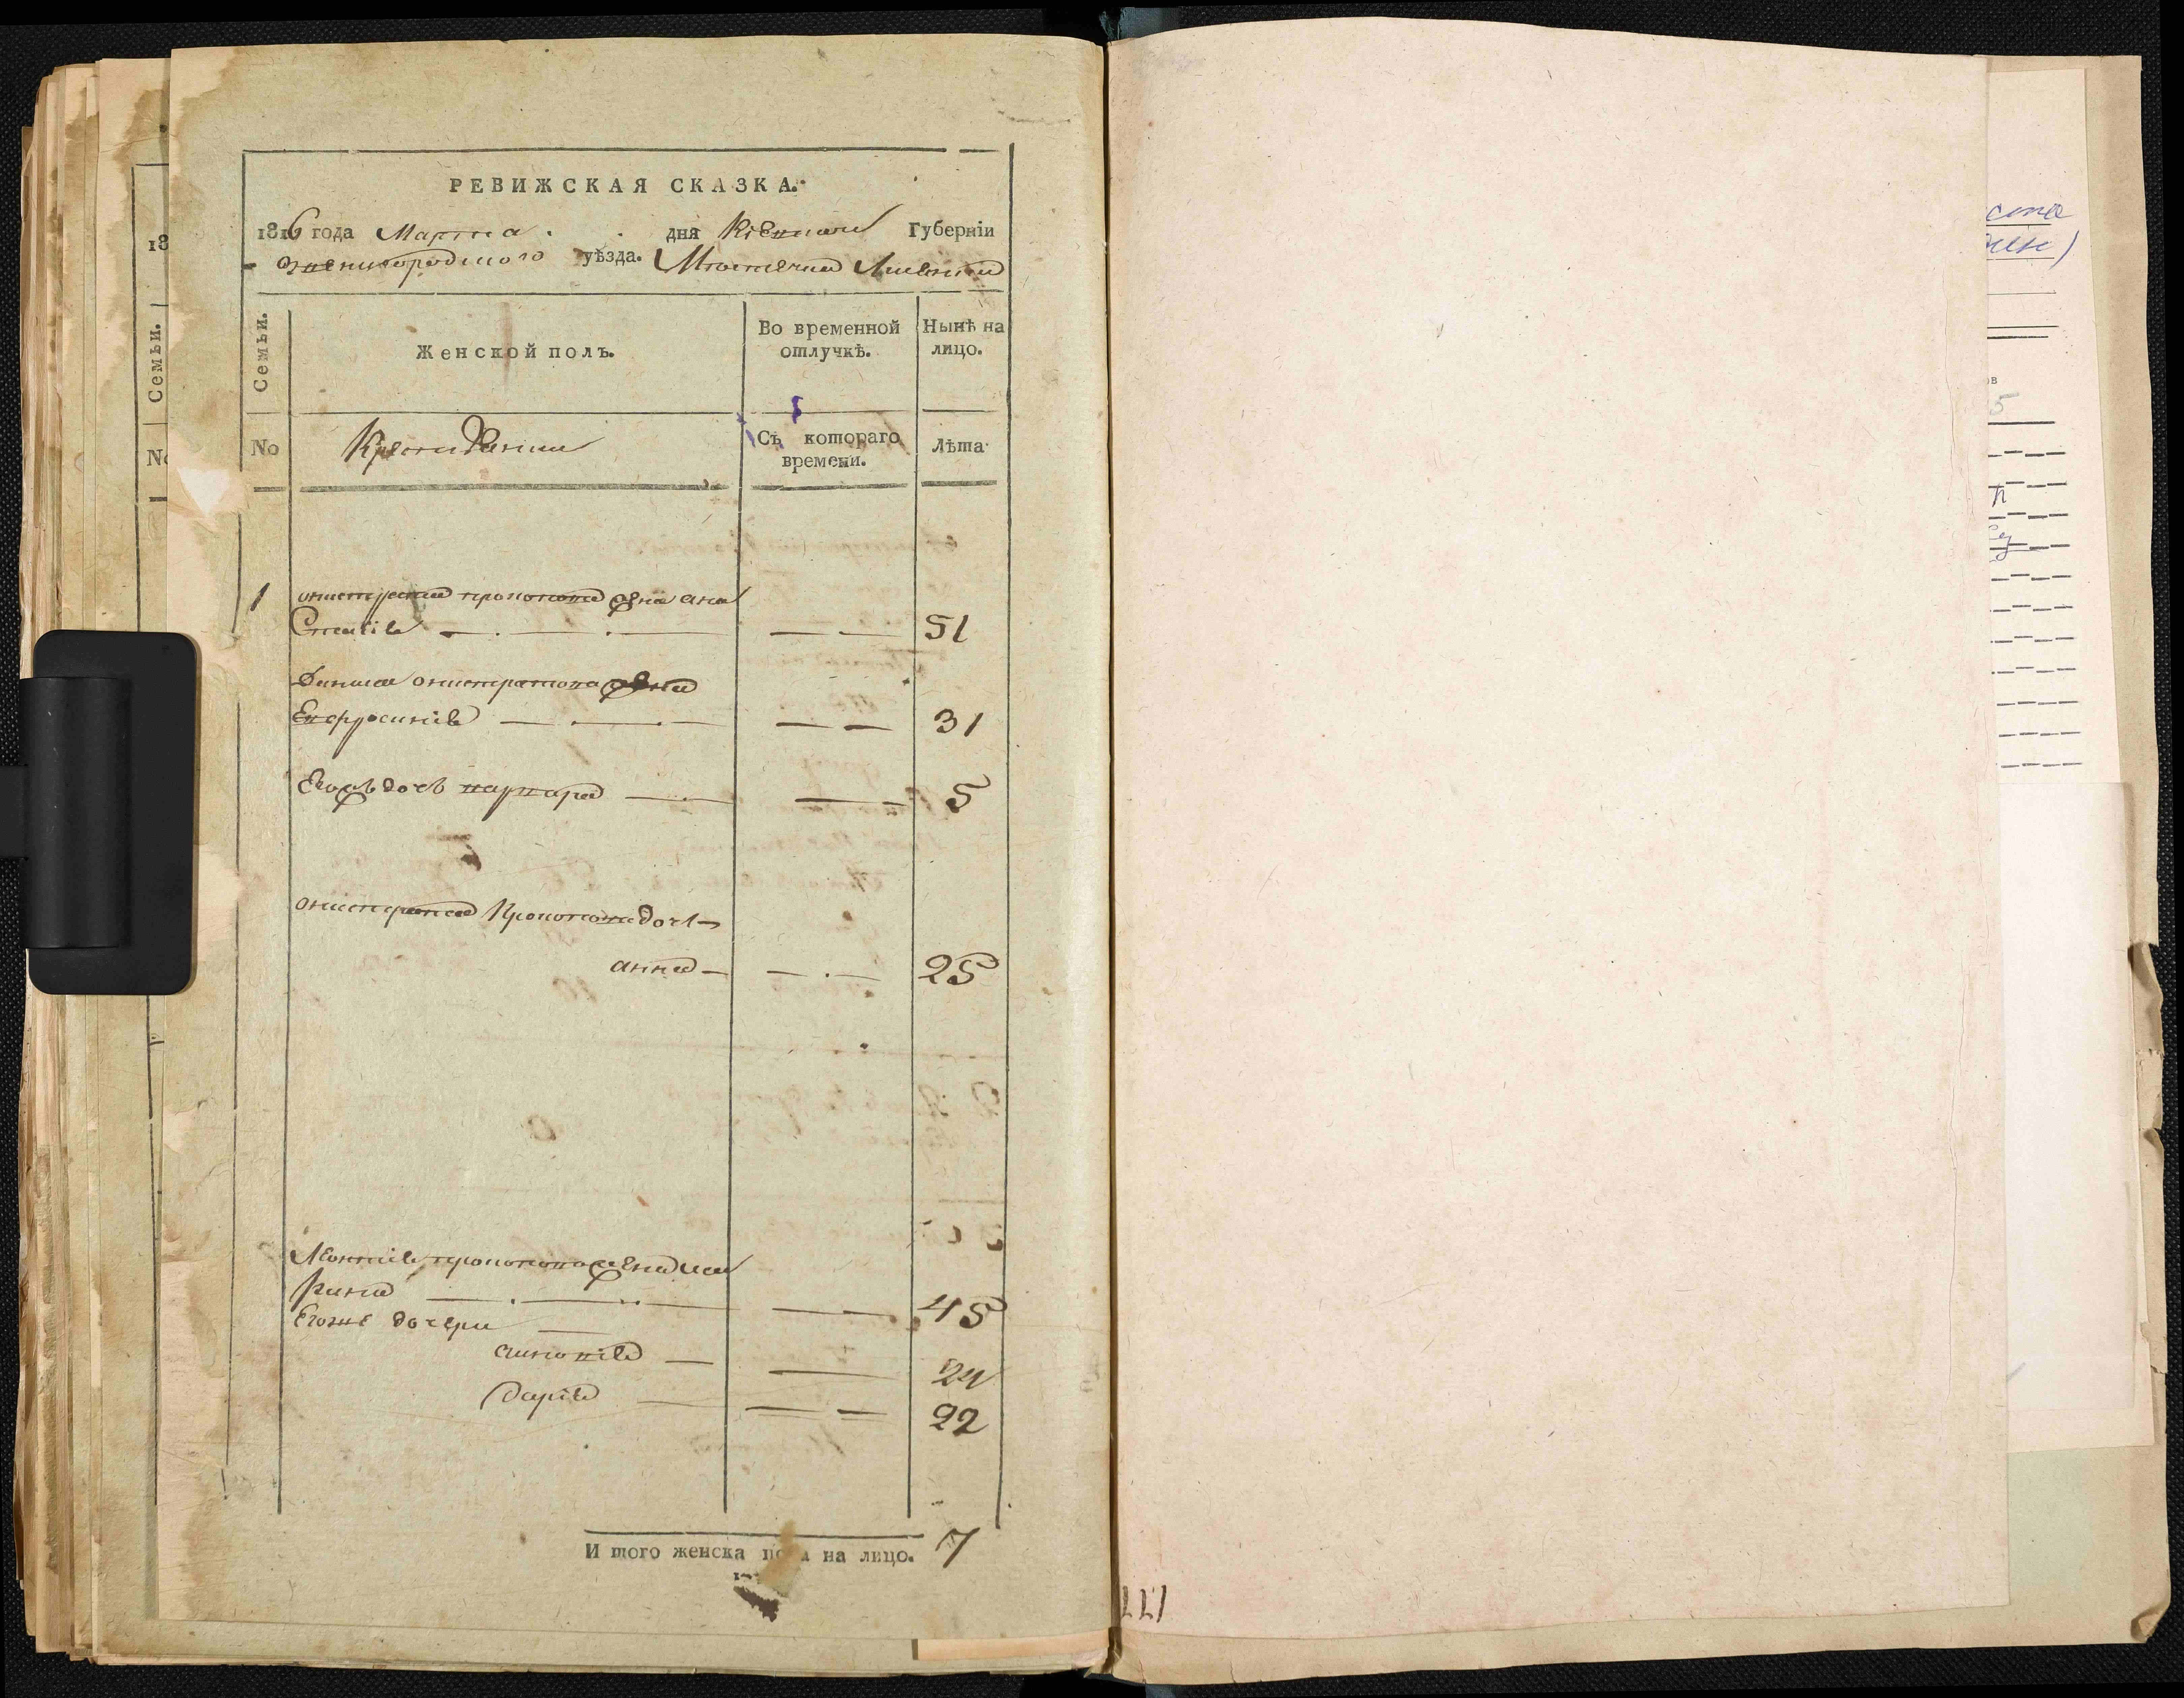 РЕВИЖСКАЯ СКАЗКА.
1816 года Марта дня Кіевской Губерніи
Звенигородского уѣзда. Мѣстечка Лисянки
Семьи.
Женской полъ.
Во временной отлучкѣ.
Нынѣ на лицо.
No
Съ котораго времени.
Лѣта
1 онистрата прокопова жена ана
стасія 51
онистратова жена
Евфросинія 31
Егожъ дочь варвара 5
онистрата Прокопова дочь
анна 25
Леонтія прокопова жена ма
рина 45
Егоже дочери
Дарія 22
И того женска пола на лицо. 7
18
Семьи.
No
177